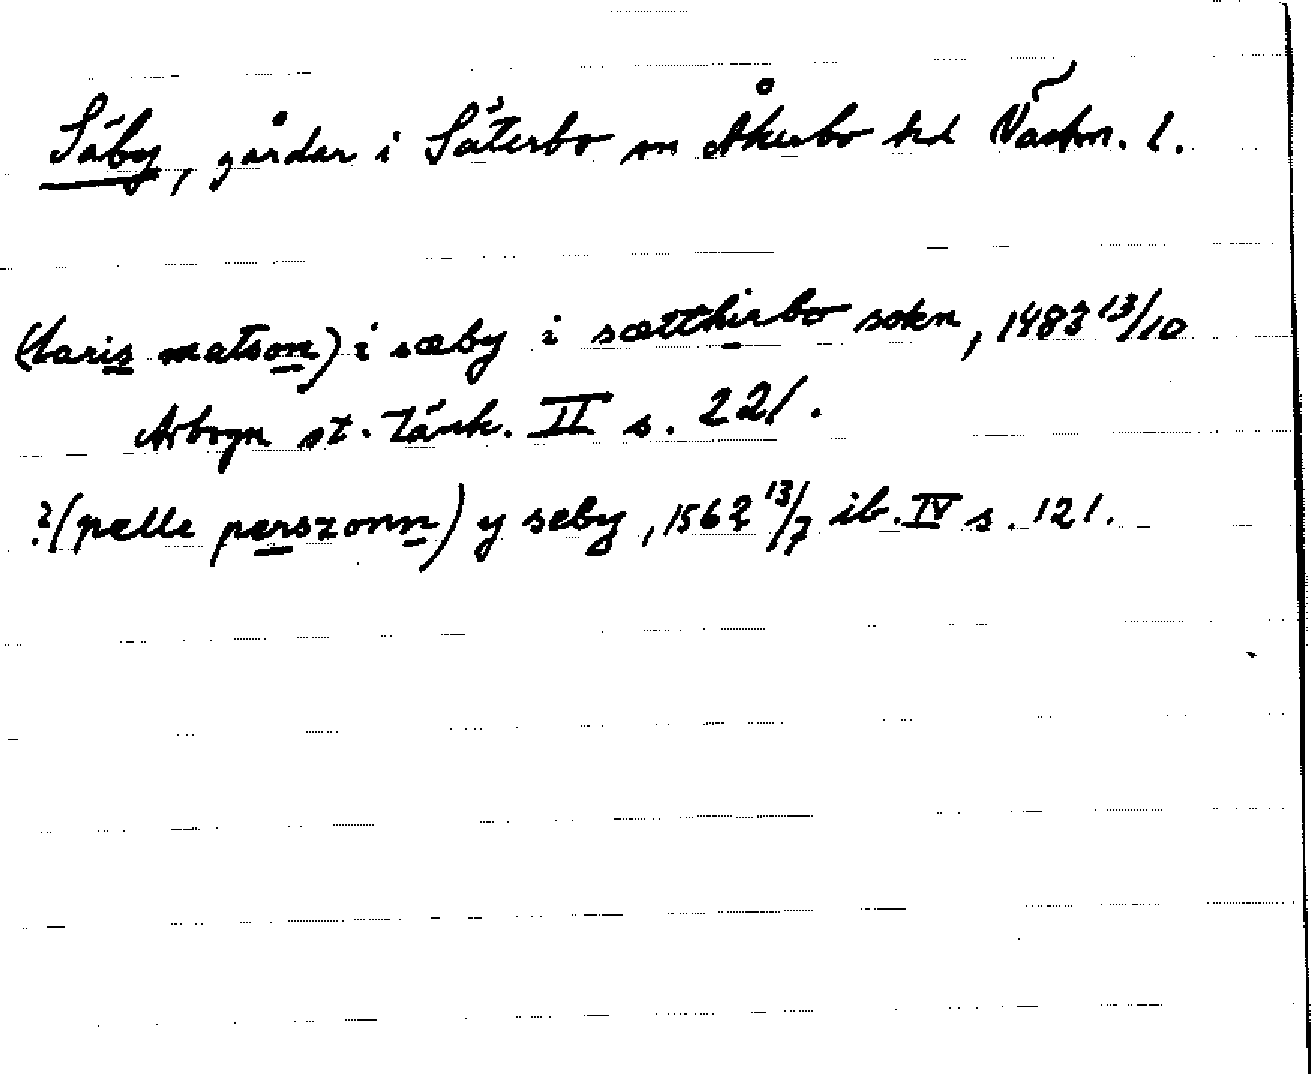 Säby, gårdar i Säterbo sn Åkerbo hd Västm. l.
(laris matson) i sæby i sætthirbo sokn, 1483 13/10
Arboga st. tänk. II s. 221.
?(pelle perszonn) y seby, 1562 13/7 ib. IV s. 121.